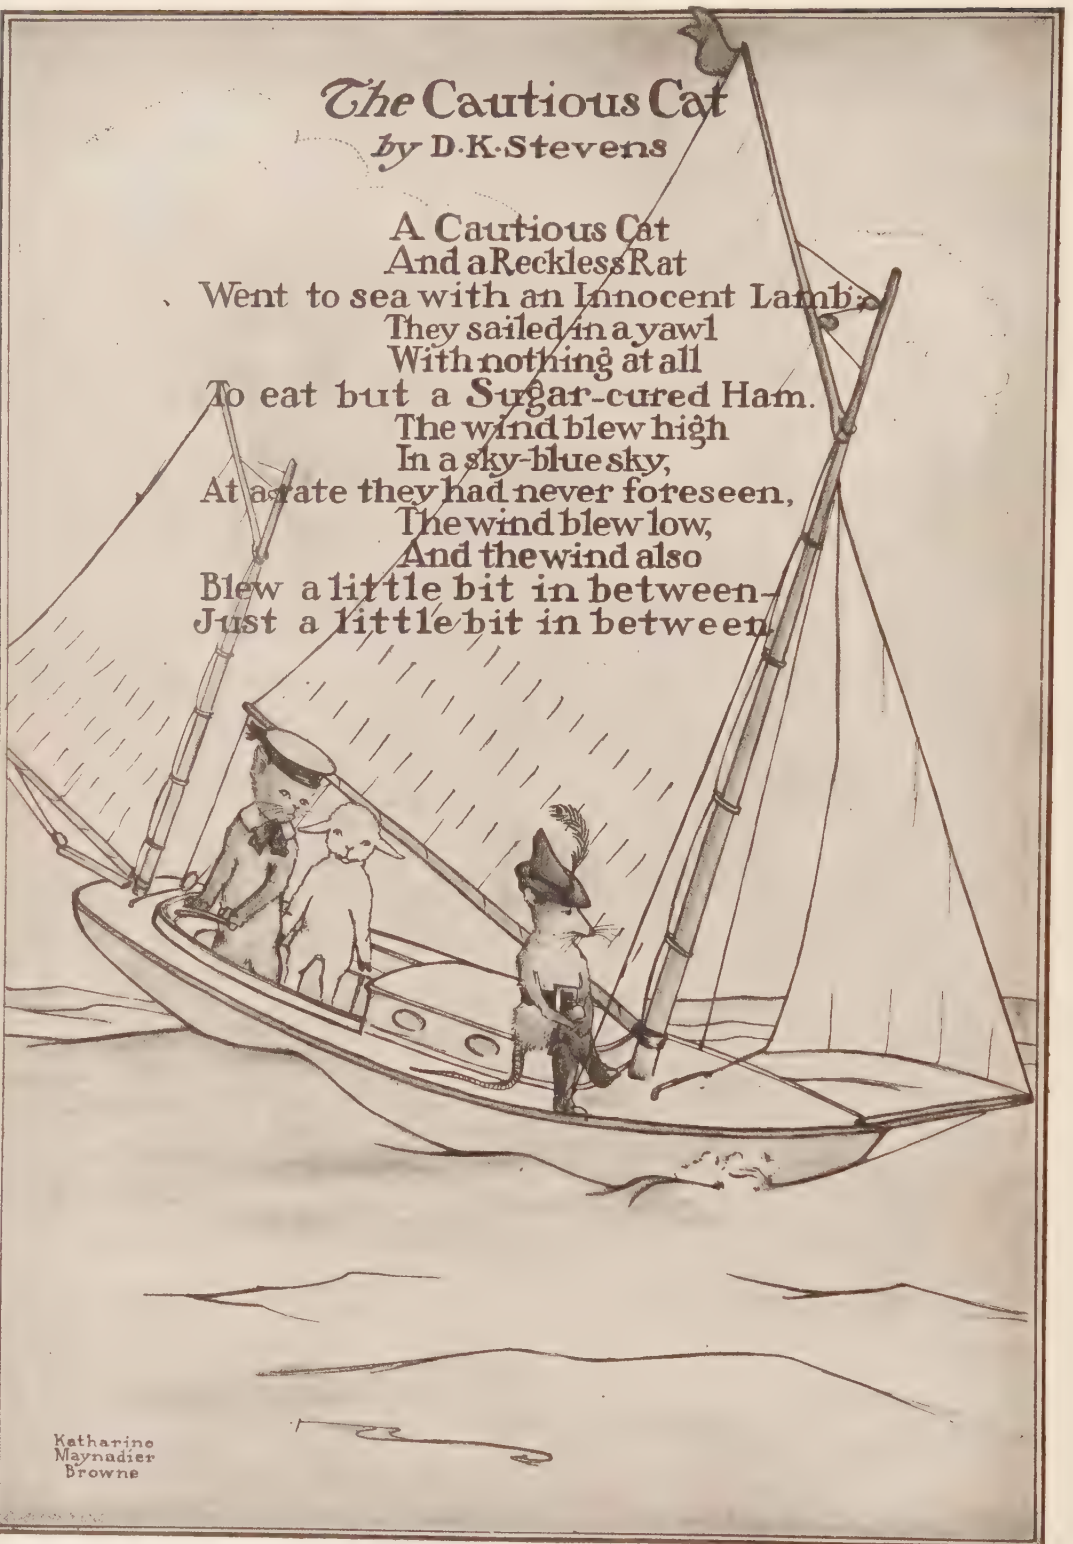 The Cautious Cat
by D·K·Stevens
A Cautious Cat
And a Reckless Rat
Went to sea with an Innocent Lamb;
They sailed in a yawl
With nothing at all
To eat but a Sugar-cured Ham.
The wind blew high
In a sky-blue sky,
At a rate they had never foreseen,
The wind blew low,
And the wind also
Blew a little bit in between-
Just a little bit in between.
Katharine
Maynadier
Browne